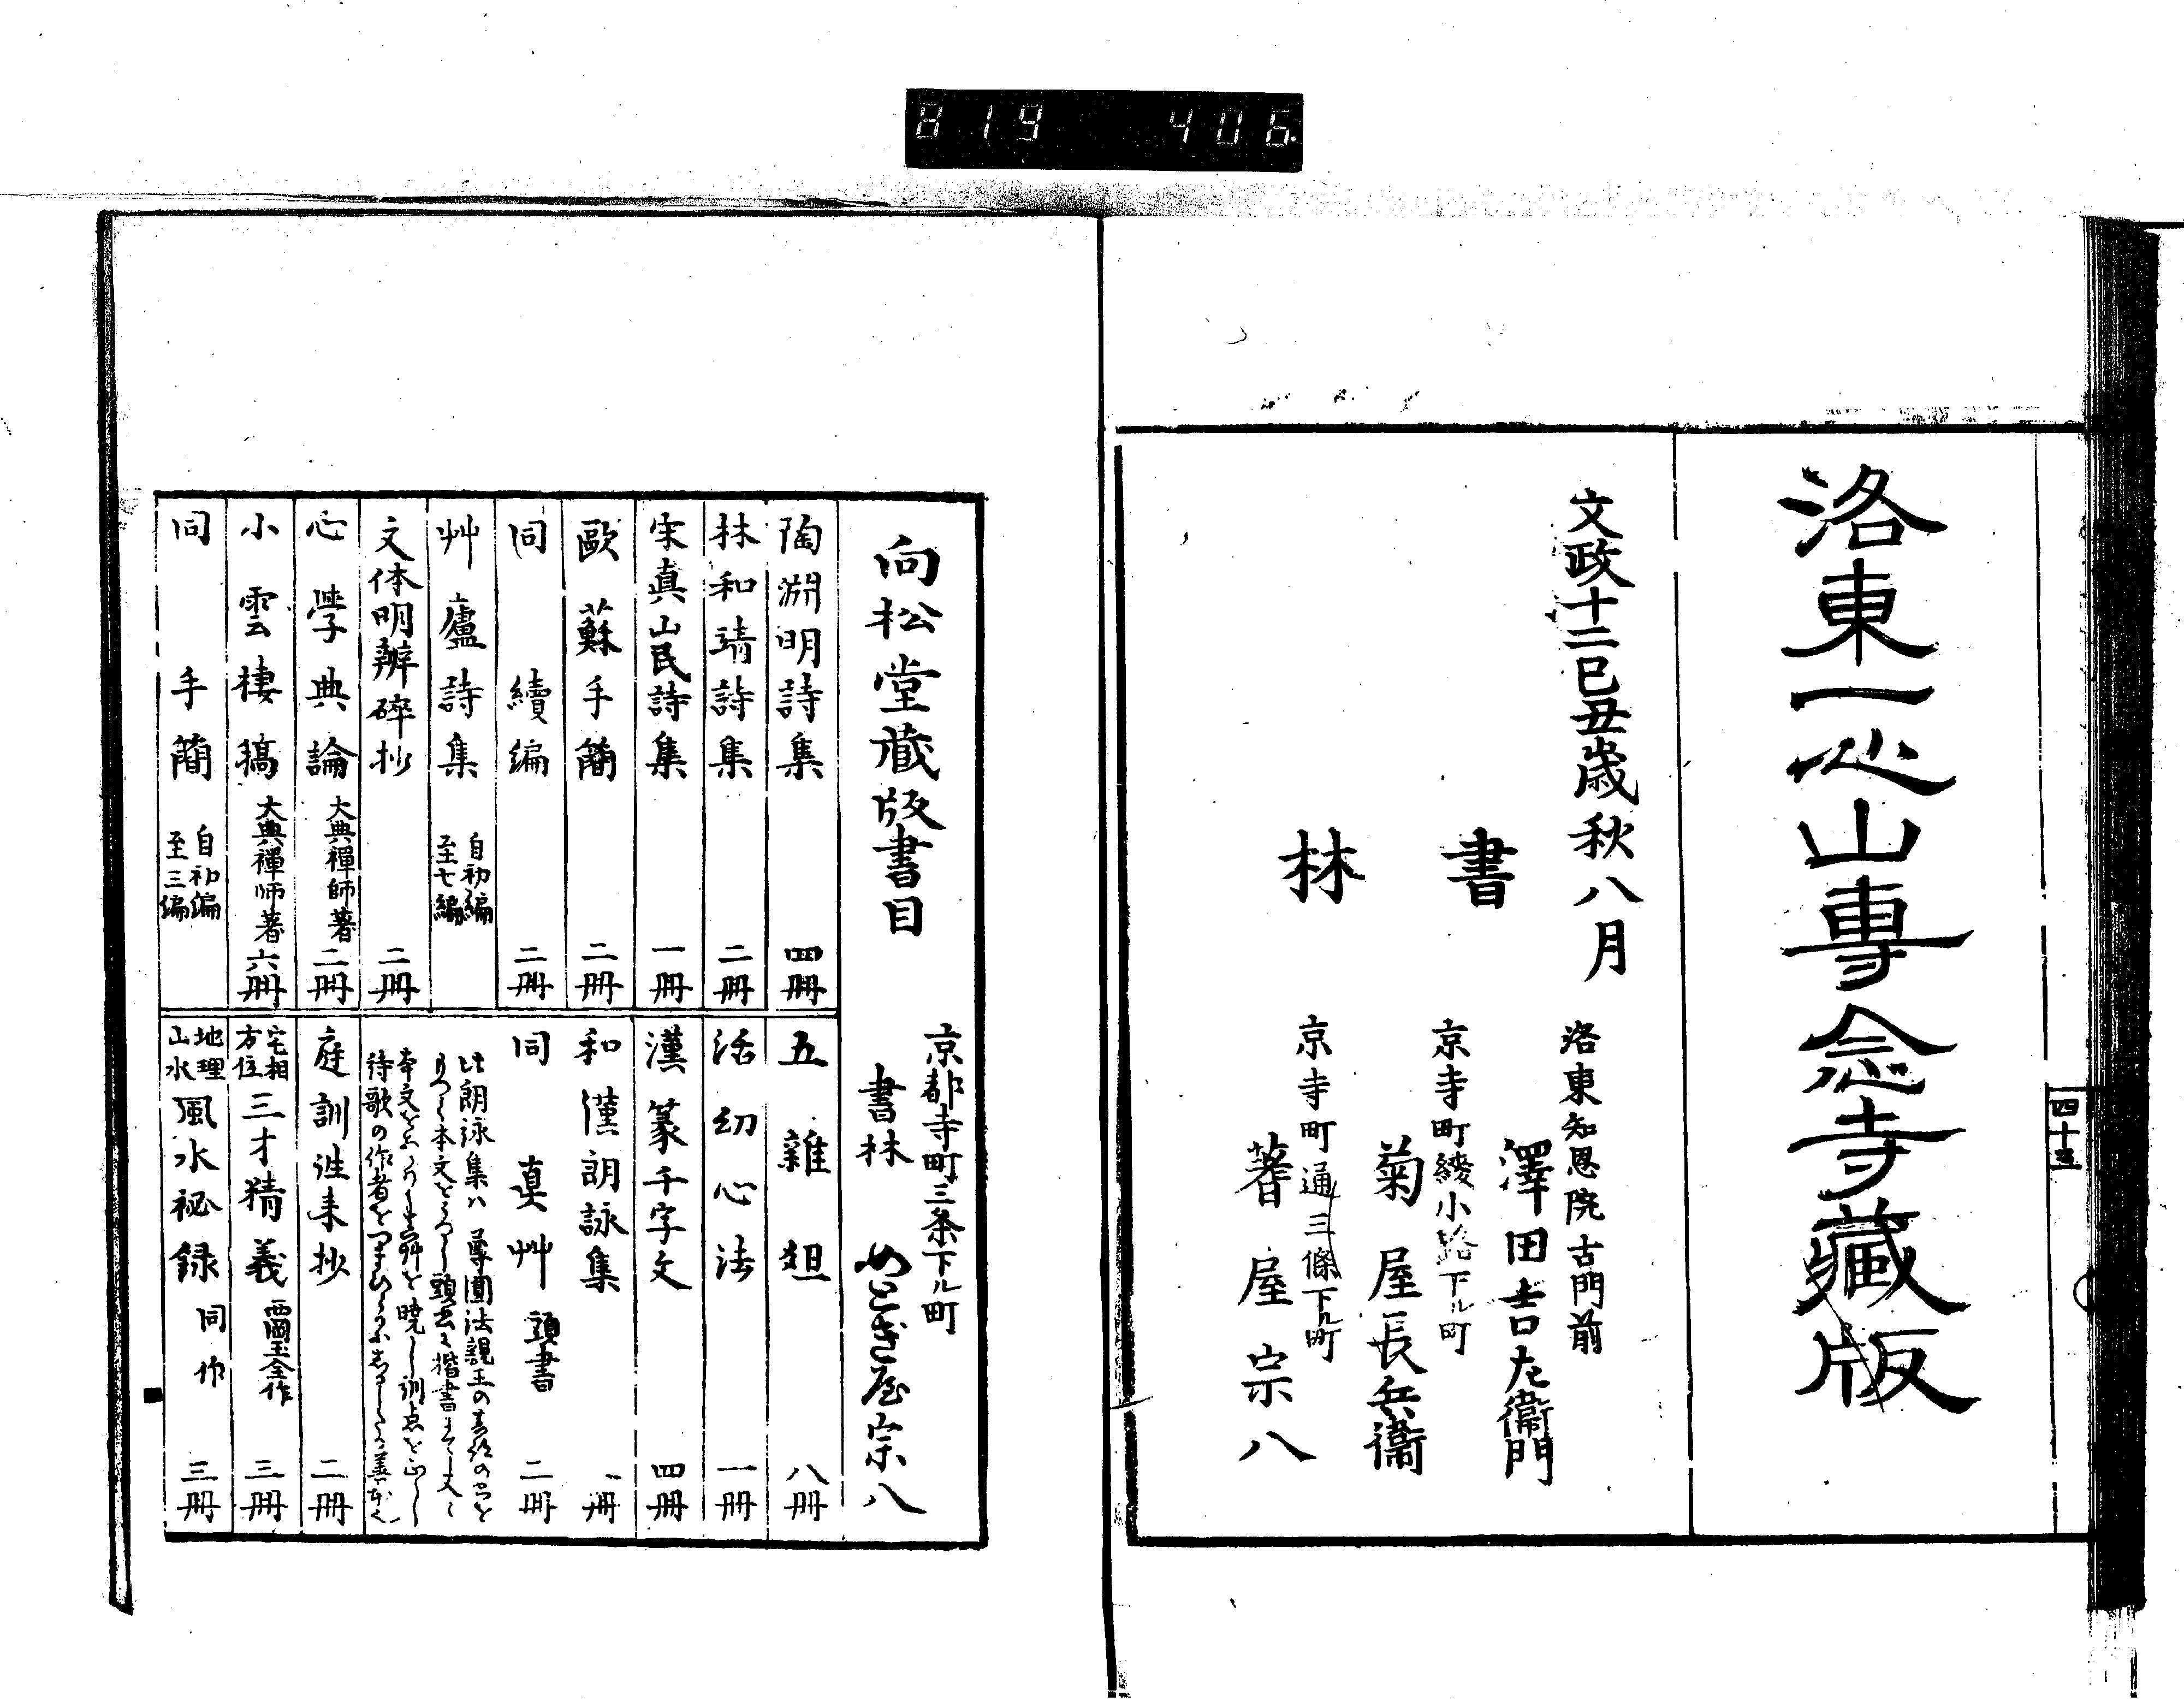 819 406
四十五
洛東一心山專念寺藏版
文政十二己丑歳秋八月
書林
洛東知恩院古門前
澤田吉左衞門
京寺町綾小路下ル町
菊屋長兵衞
京寺町通三條下ル町
蓍屋宗八
向松堂藏版書目
京都寺町三条下ル町
書林 めとぎ屋宗八
陶淵明詩集 四冊
林和靖詩集 二冊
宋真山民詩集 一冊
歐蘇手簡 二冊
同續編 二冊
艸廬詩集 自初編至七編
文体明辨碎抄 二冊
心学典論 大典禪師著 二冊
小雲棲稿 大典禪師著 六冊
同手簡 自初編至三編
五雜俎 八冊
活幼心法 一冊
漢篆千字文 四冊
和漢朗詠集 一冊
同真艸 頭書 二冊
此朗詠集ハ尊圓法親王の
本文を
頭書に楷書
本文を
を暁し訓点を正し
詩歌の作者を
庭訓徃来抄 二冊
宅相方位 三才精義 西岡玉全作 三冊
地理山水 風水祕録 同作 三冊